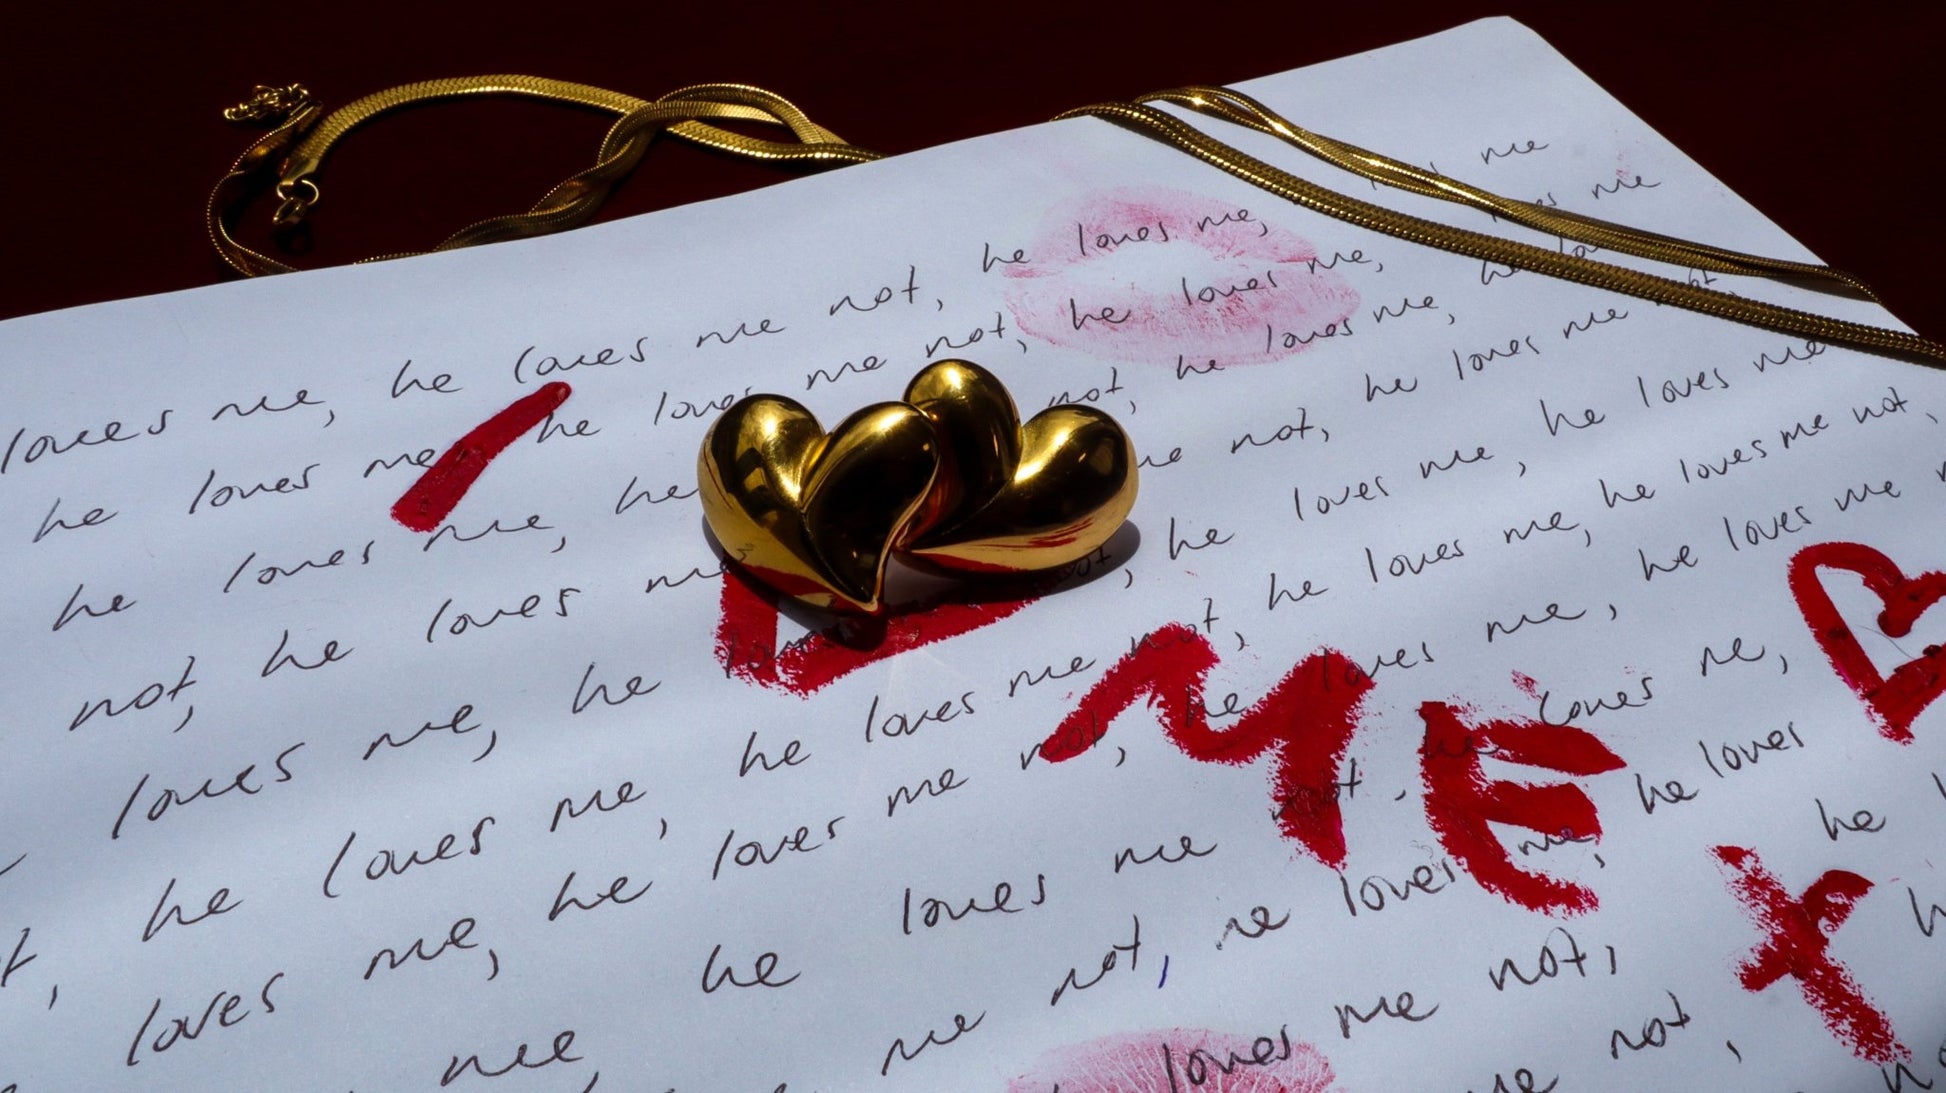 loves me, he loves me not, he loves me, me
he loves me he loves me not, he loves me, me
he loves me, he not, he loves me, he
not, he loves me me not, he loves me
loves me, he not, he loves me, he loves me
he loves me, he loves me not, he loves me, he loves me not,
loves me, he loves me not, he loves me, he loves me
me, he loves me not, he loves me,
me not, he loves me, he loves
loves me not, he
me not,
ME